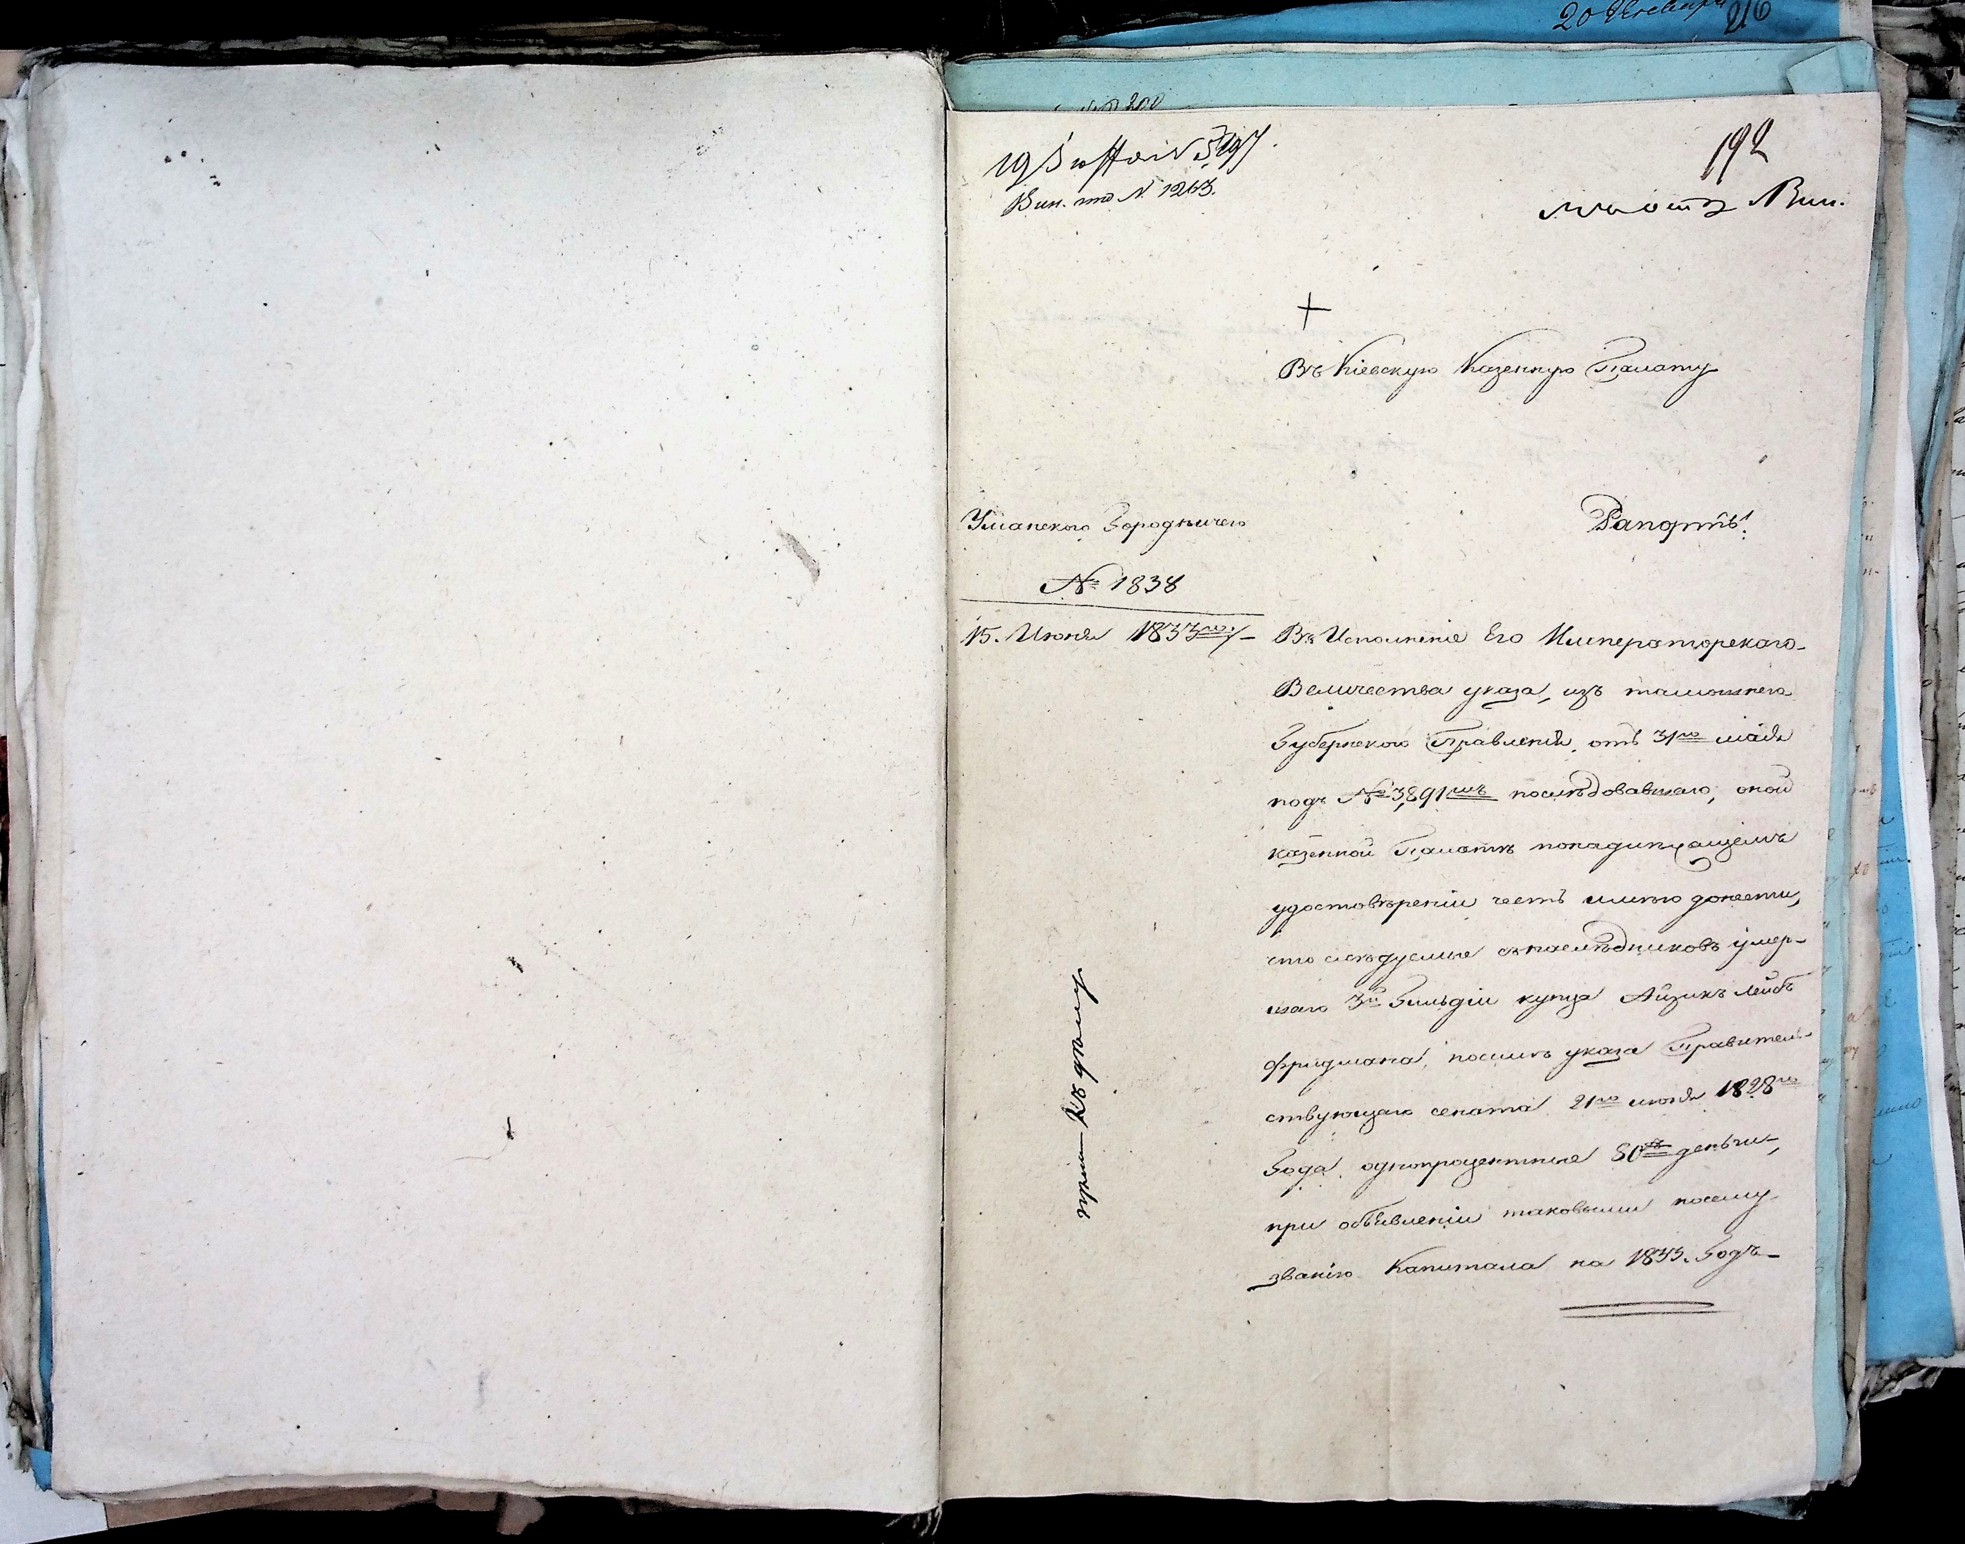 20 декабря 216
№ 200
19 Июня № 5197.
192
Вин. сто № 1243.
Вин.
Въ Кіевскую Казенную Палату
Уманского Городничего
Рапортъ.
№ 1838
15. Июня 1833го
Въ Исполненіе Его Императорскаго
Величества указа, изъ тамошнего
Губернского Правленія, отъ 31го маія
подъ № 3,891мъ последовавшаго, оной
казенной Палатѣ
удостовѣреніи честь имѣю донести,
что следуемые съ наслѣдниковъ умер-
шаго 3й Гильдіи купца Айзика Лейбъ
Фридмана, после указа Правитель-
ствующаго сената 21го июня 1828го
Года однопроцентные 80 деньги,
при объявленіи таковыми посему
званію Капитала на 1833. Годъ
къ дѣлу